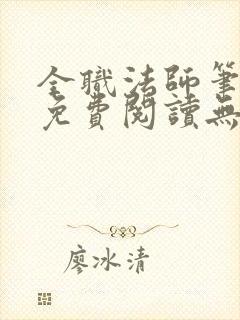 全職法師筆
免費閱讀無
廖冰清